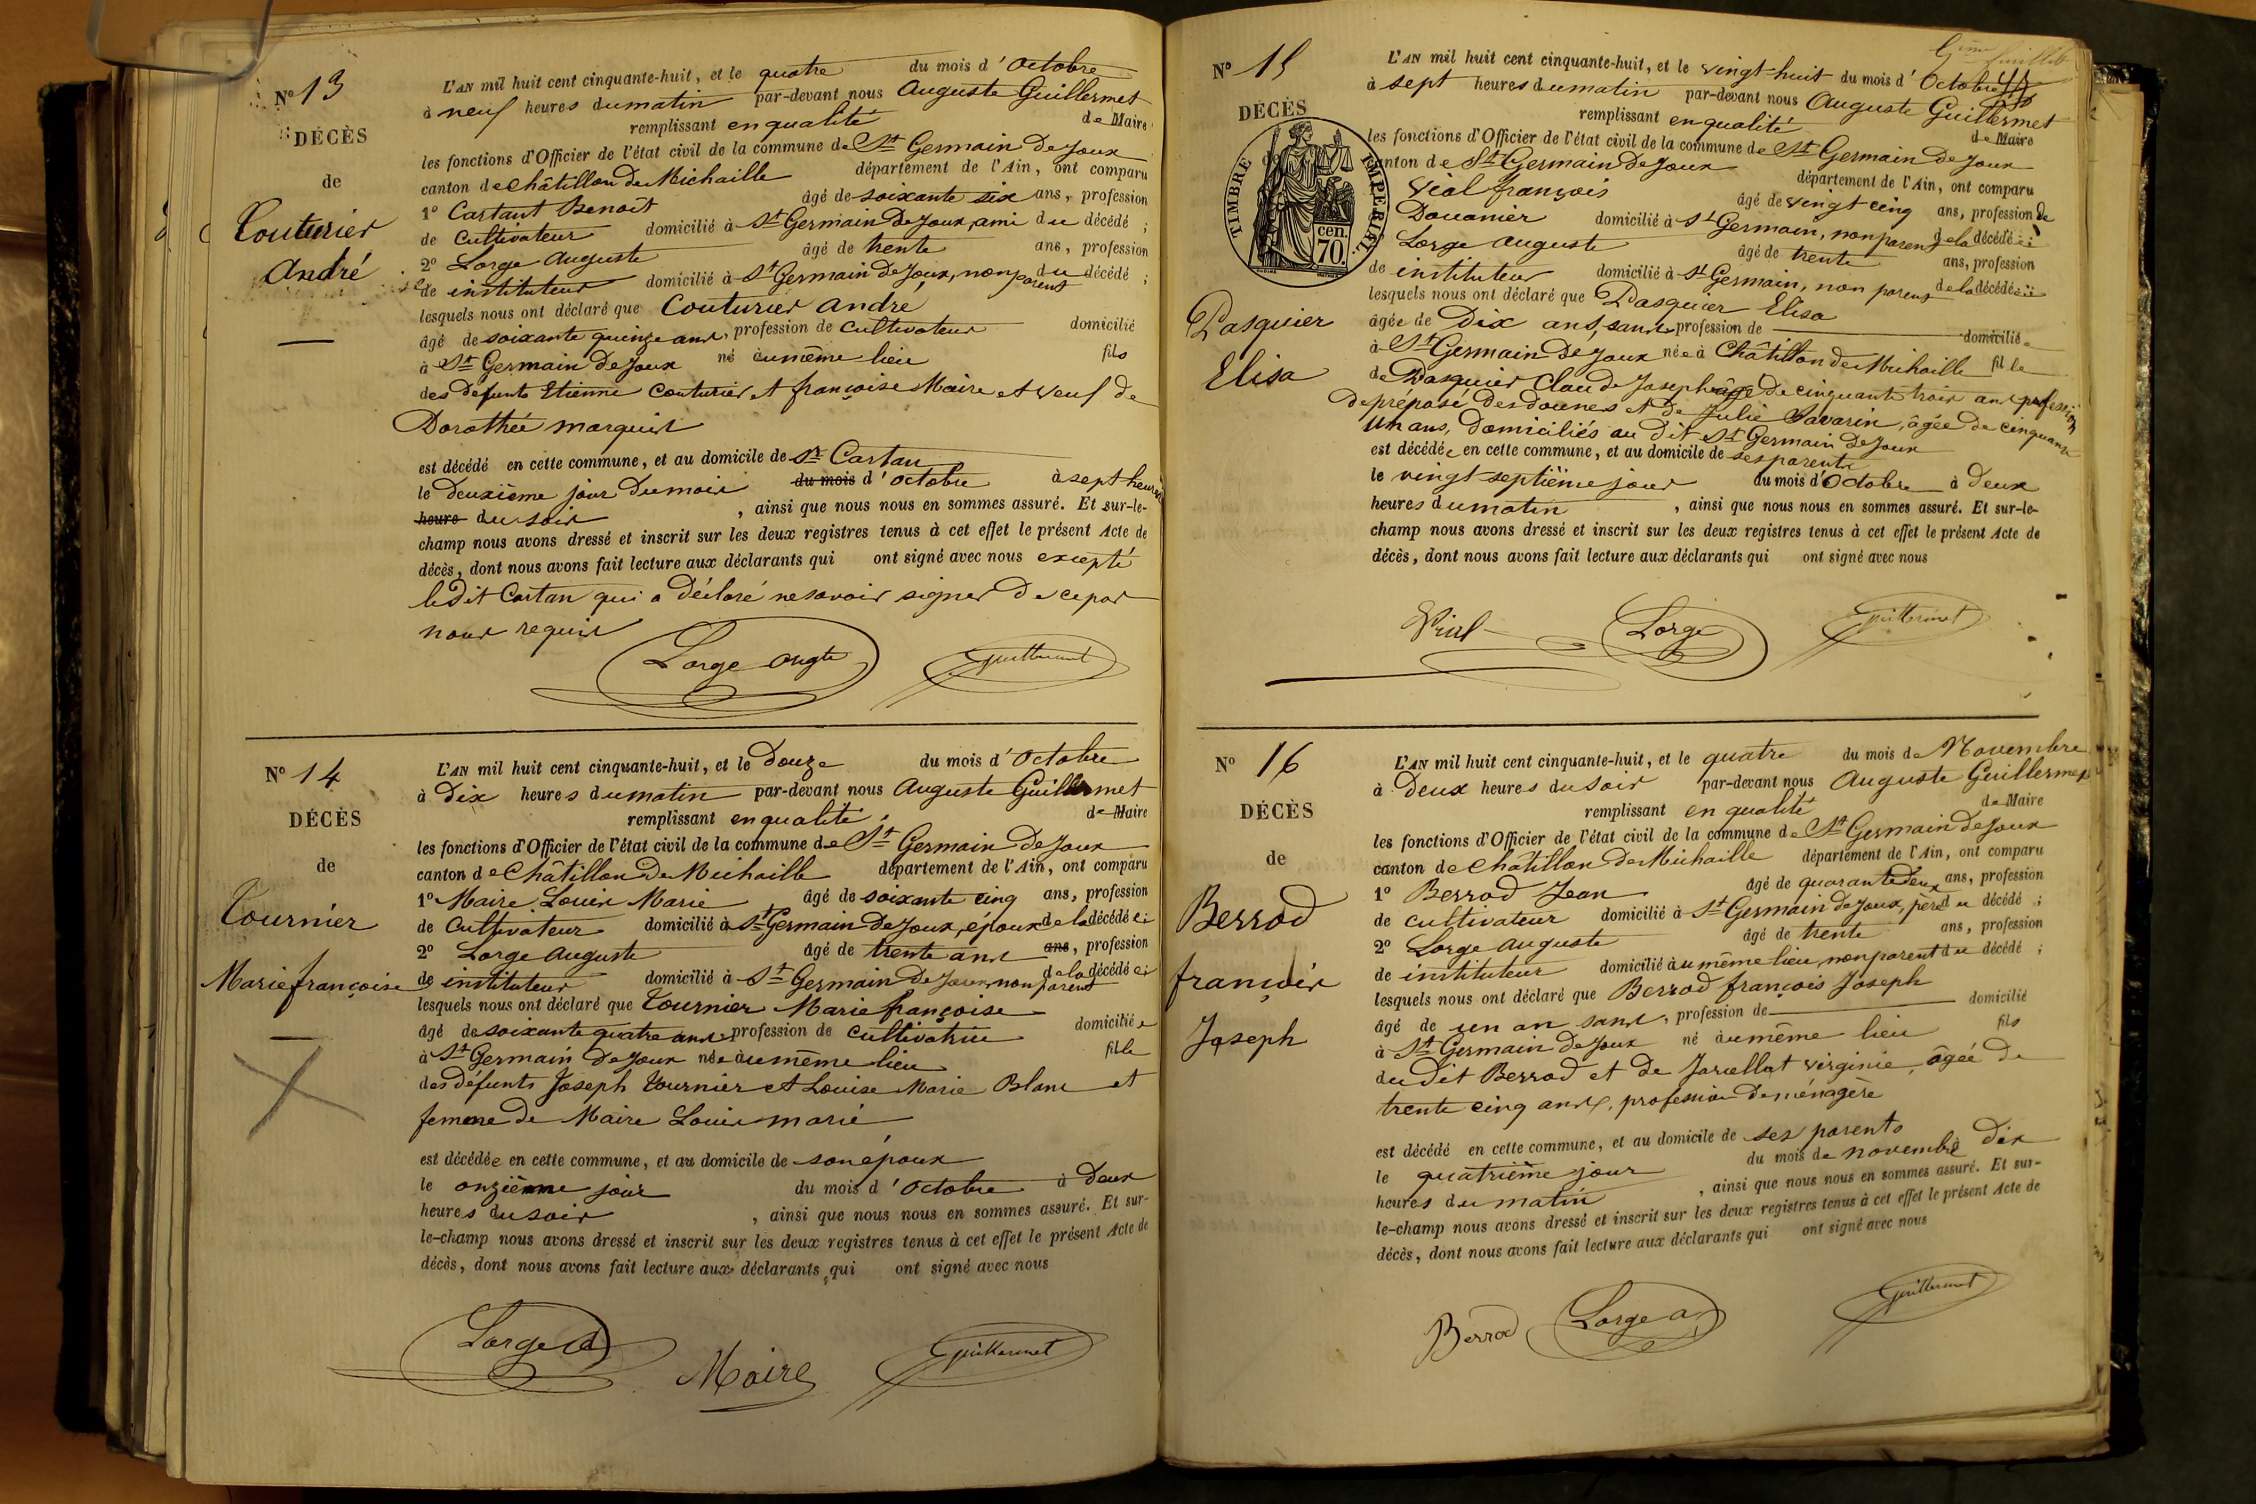 N° 13
DÉCÈS
de
Couturier
André
L'AN mil huit cent cinquante-huit, et le quatre du mois d'Octobre
à neuf heures du matin par-devant nous Auguste Guillermet
remplissant en qualité de Maire
les fonctions d'Officier de l'état civil de la commune de St Germain de Joux
canton de Châtillon de Michaille département de l'Ain, ont comparu
1° Cartant Benoît âgé de soixante six ans, profession
de Cultivateur domicilié à St Germain de Joux, ami du décédé ;
2° Lorge Auguste âgé de trente ans, profession
de instituteur domicilié à St Germain de Joux, non parent du décédé ;
lesquels nous ont déclaré que Couturier André
âgé de soixante quinze ans, profession de cultivateur domicilié
à St Germain de Joux né au même lieu fils
des défunts Etienne Couturier et françoise Maire et veuf de
Dorothée Marquis
est décédé en cette commune, et au domicile de Sr Cartan
le deuxième jour du mois du mois d'Octobre à sept heures
heure du soir , ainsi que nous nous en sommes assuré. Et sur-le-
champ nous avons dressé et inscrit sur les deux registres tenus à cet effet le présent Acte de
décès, dont nous avons fait lecture aux déclarants qui ont signé avec nous excepté
le dit Cartan qui a déclaré ne savoir signer de ce par
nous requis
Lorge augte Guillermet
N° 14
DÉCÈS
de
Tournier
Marie françoise
L'AN mil huit cent cinquante-huit, et le Douze du mois d'Octobre
à Dix heures du matin par-devant nous Auguste Guillermet
remplissant en qualité de Maire
les fonctions d'Officier de l'état civil de la commune de St Germain de Joux
canton de Châtillon de Michaille département de l'Ain, ont comparu
1° Maire Louis Marie âgé de soixante cinq ans, profession
de Cultivateur domicilié à St Germain de Joux, époux de la décédée ;
2° Lorge Auguste âgé de trente ans ans, profession
de instituteur domicilié à St Germain de Joux, non parent de la décédée ;
lesquels nous ont déclaré que Tournier Marie françoise
âgé de soixante quatre ans profession de Cultivatrice domiciliée
à St Germain de Joux née au même lieu fille
des défunts Joseph Tournier et Louise Marie Blanc et
femme de Maire Louis Marie
est décédée en cette commune, et au domicile de son époux
le onzième jour du mois d'Octobre à Deux
heures du soir , ainsi que nous nous en sommes assuré. Et sur-
le-champ nous avons dressé et inscrit sur les deux registres tenus à cet effet le présent Acte de
décès, dont nous avons fait lecture aux déclarants qui ont signé avec nous
Lorge A Maire Guillermet
N° 15
DÉCÈS
TIMBRE IMPERIAL.
70. cen.
Pasquier
Elisa
L'AN mil huit cent cinquante-huit, et le vingt-huit du mois d'Octobre
à sept heures du matin par-devant nous Auguste Guillermet
remplissant en qualité de Maire
les fonctions d'Officier de l'état civil de la commune de St Germain de Joux
canton de St Germain de Joux département de l'Ain, ont comparu
Vial françois âgé de vingt cinq ans, profession de
Douanier domicilié à St Germain, non parent de la décédée ;
Lorge Auguste âgé de trente ans, profession
de instituteur domicilié à St Germain, non parent de la décédée ;
lesquels nous ont déclaré que Pasquier Elisa
âgée de Dix ans, sans profession de domiciliée
à St Germain de Joux née à Châtillon de Michaille fille
de Pasquier Claude Joseph âgé de cinquante trois ans profession
de préposé des douanes et de Julie Savarin, âgée de cinquante
un ans, domiciliés au dit St Germain de Joux
est décédée en cette commune, et au domicile de ses parents
le vingt septième jour du mois d'Octobre à Deux
heures du matin , ainsi que nous nous en sommes assuré. Et sur-le-
champ nous avons dressé et inscrit sur les deux registres tenus à cet effet le présent Acte de
décès, dont nous avons fait lecture aux déclarants qui ont signé avec nous
Vial Lorge Guillermet
N° 16
DÉCÈS
de
Berrod
françois
Joseph
L'AN mil huit cent cinquante-huit, et le quatre du mois de Novembre
à Deux heures du soir par-devant nous Auguste Guillermet
remplissant en qualité de Maire
les fonctions d'Officier de l'état civil de la commune de St Germain de Joux
canton de Châtillon de Michaille département de l'Ain, ont comparu
1° Berrod Jean âgé de quarante deux ans, profession
de cultivateur domicilié à St Germain de Joux, père du décédé ;
2° Lorge Auguste âgé de trente ans, profession
de instituteur domicilié au même lieu, non parent du décédé ;
lesquels nous ont déclaré que Berrod françois Joseph
âgé de un an sans, profession de domicilié
à St Germain de Joux né au même lieu fils
du dit Berrod et de Jarcellat virginie, âgée de
trente cinq ans, profession de ménagère
est décédé en cette commune, et au domicile de ses parents
le quatrième jour du mois de novembre à Dix
heures du matin , ainsi que nous nous en sommes assuré. Et sur-
le-champ nous avons dressé et inscrit sur les deux registres tenus à cet effet le présent Acte de
décès, dont nous avons fait lecture aux déclarants qui ont signé avec nous
Berrod Lorge A Guillermet